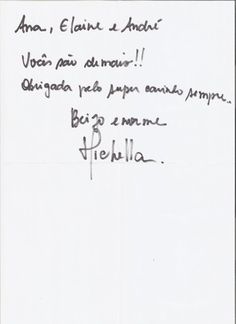 Ana, Elaine e André
Vocês são demais!!
Obrigada pelo super carinho sempre..
Beijo enorme
Michella.